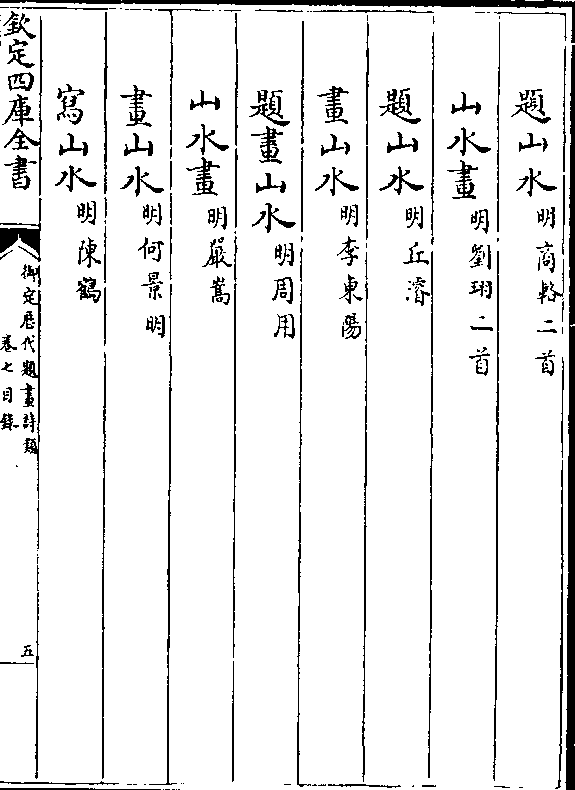 題山水明商輅二首
山水畫明劉珝二首
題山水明丘濬
畫山水明李東陽
題畫山水明周用
山水畫明嚴嵩
畫山水明何景明
寫山水明陳鶴
欽定四庫全書
御定歷代題畫詩類
卷七目錄
五